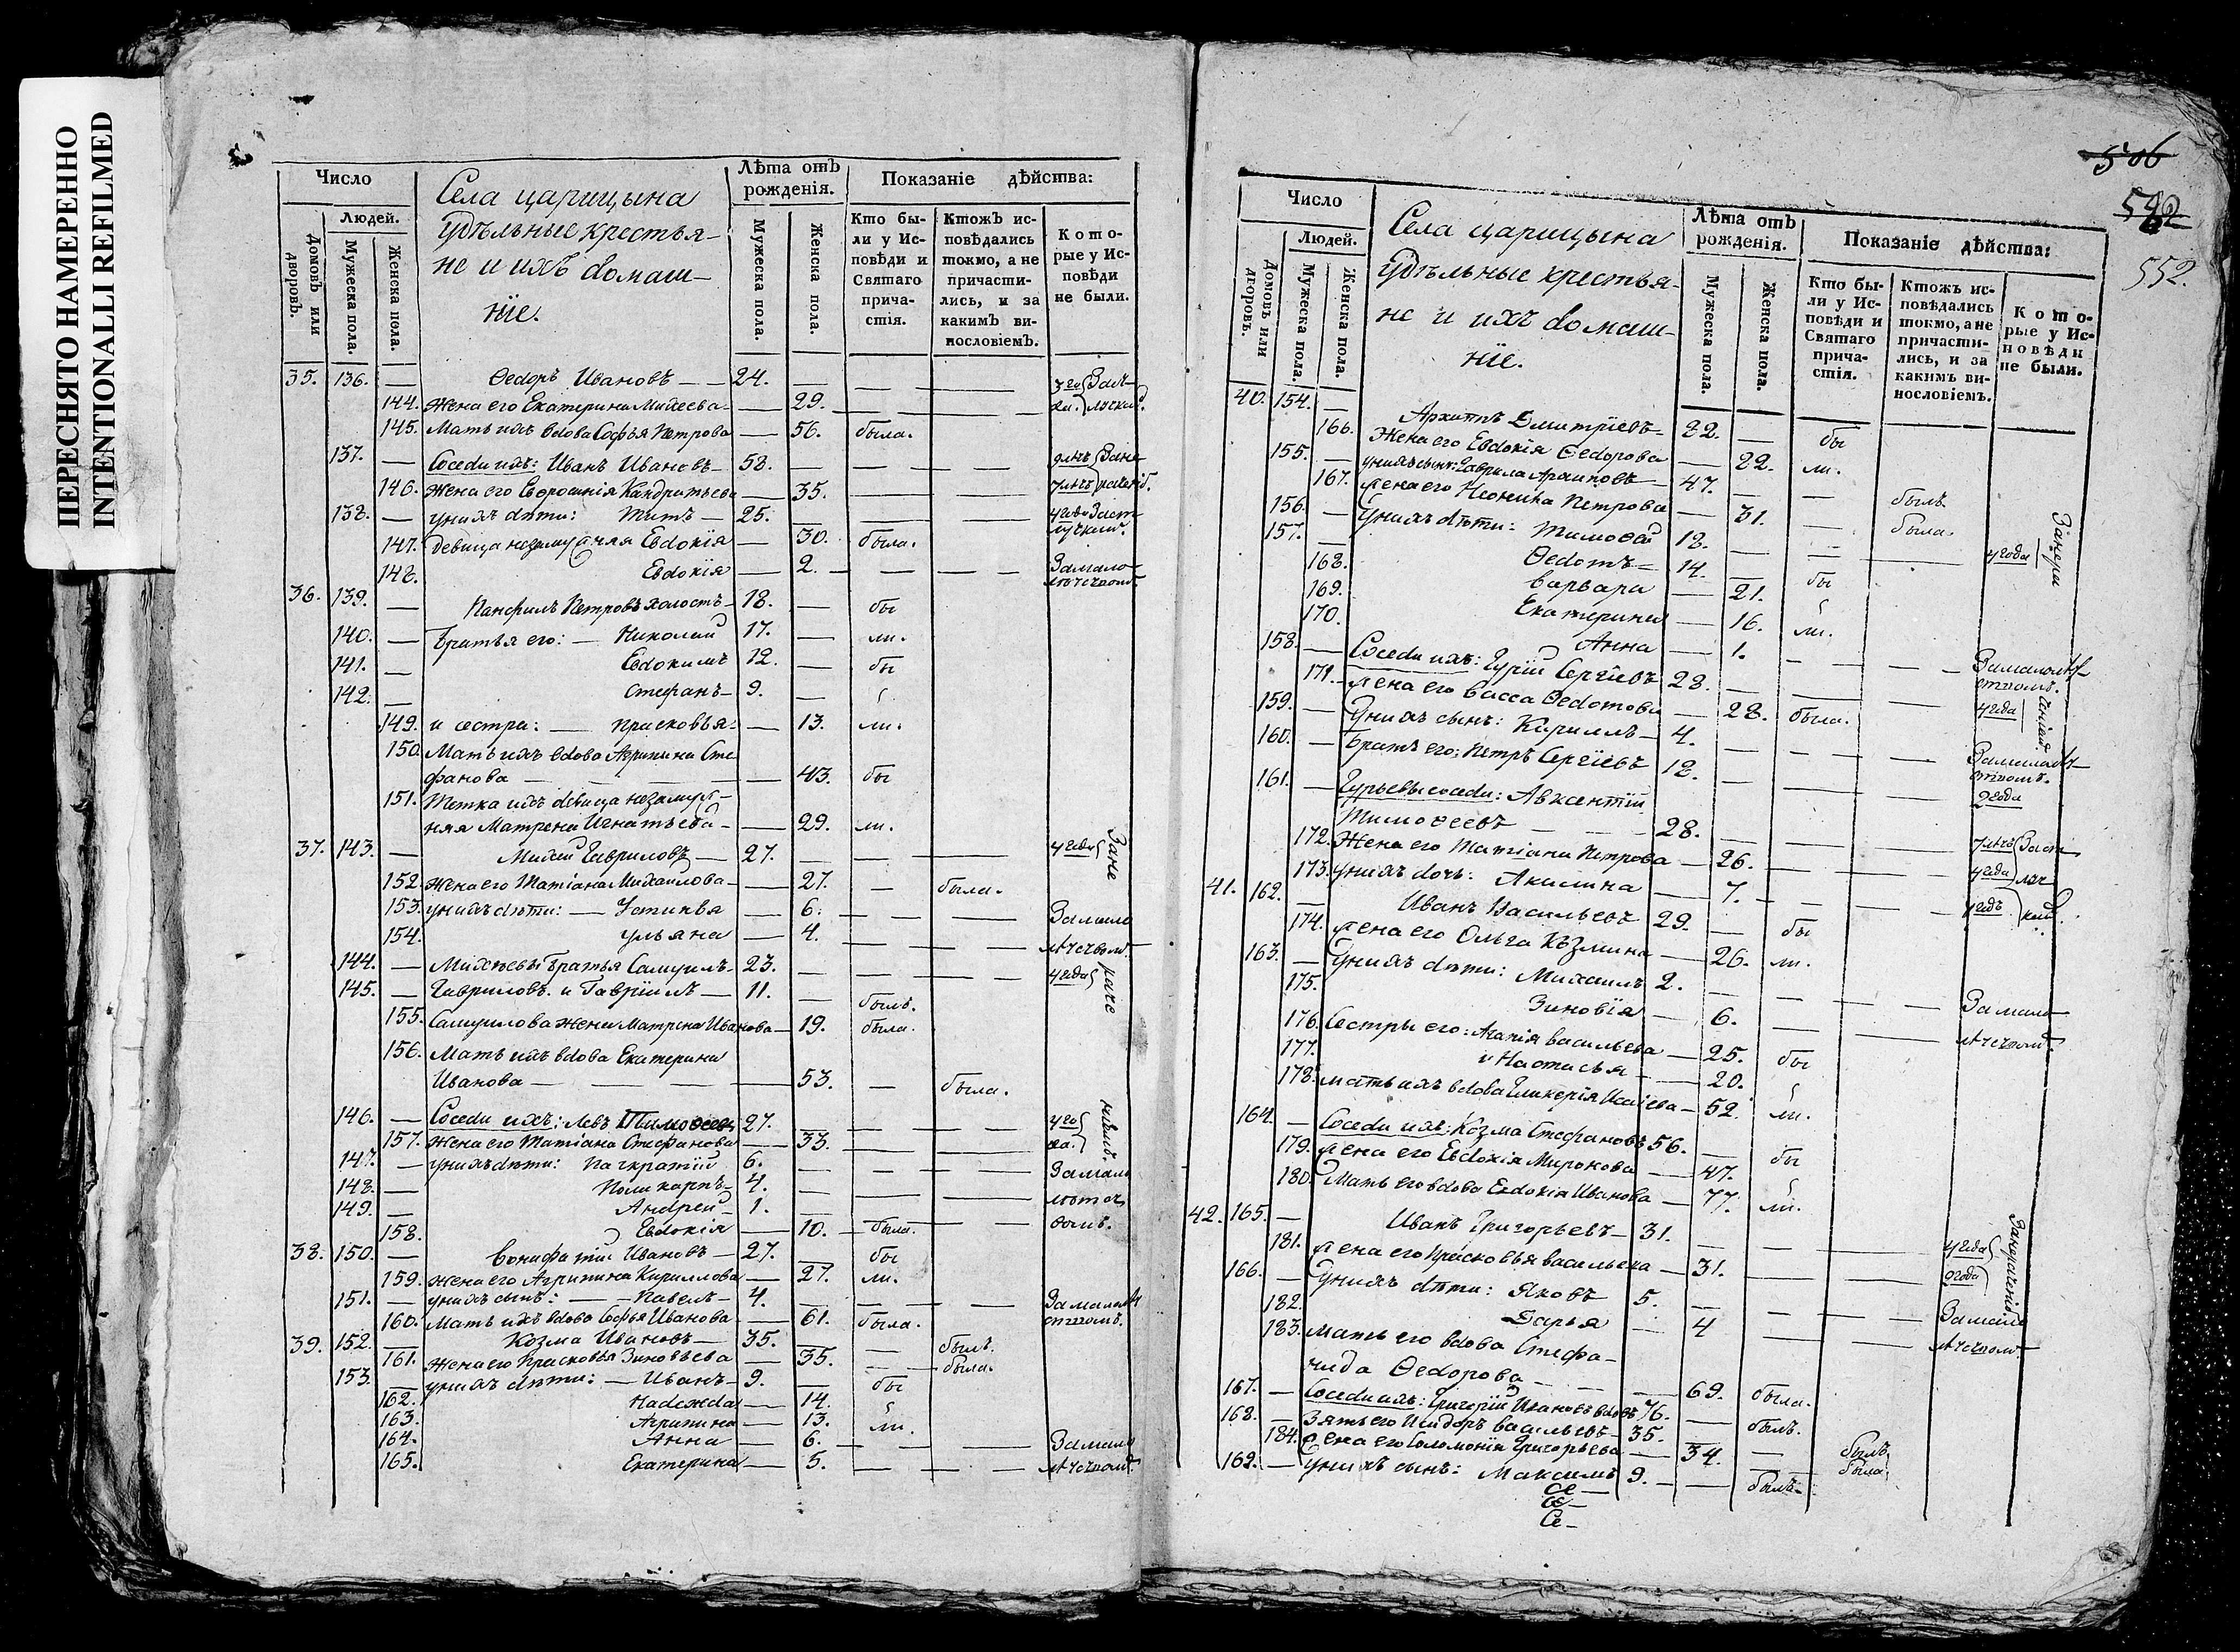 ПЕРЕСНЯТО НАМЕРЕННО
INTENTIONALLI REFILMED
Число
Людей.
Домовъ или дворовъ.
Мужеска пола.
Женска пола.
Села царицына
удѣльные крестья-
не и ихъ домаш-
нїе.
Лѣта отъ рожденія.
Мужеска пола.
Женска пола.
Показаніе дѣйства:
Кто бы-ли у Ис-повѣди и Святаго прича-стія.
Ктожъ ис-повѣдались токмо, а не причасти-лись, и за какимъ ви-нословіемъ.
Кото-рые у Ис-повѣди не были.
35. 136. — Ѳедоръ Ивановъ — 24. — — —
144. Жена его Екатерина Михеева — 29. — —
145. Мать ихъ вдова Софья Петрова — 56. была.
137. — Соседи ихъ: Иванъ Ивановъ — 58. — — —
146. Жена его Евфросинія Кандратьева — 35. — —
138. — у нихъ дѣти: Титъ — 25. — — —
147. Девица незамужняя Евдокїя — 30. была.
148. Евдокїя — 2. — — — За мало-лѣтством.
36. 139. — Панфилъ Петровъ холостъ — 18. — бы
140. — Братья его: — Николай 17. — ли.
141. — Евдокимъ 12. — бы
142. — Стефанъ — 9. —
149. и сестра: — Прасковья — 13. ли.
150. Мать ихъ вдова Агрипина Сте-
фанова — 43. бы
151. Тетка ихъ девица незамуж-
няя Матрена Игнатьева — 29. ли.
37. 143. — Михей Гавриловъ — 27. — — — 4 года
152. Жена его Татіана Михайлова — 27. — была.
153. у нихъ дѣти: — Устинья — 6. — — — За мало
154. Ульяна — 4. — — — лѣтством.
144. — Михѣевы братья Самуилъ — 23. — — — 4 года
145. — Гавриловъ. и Гаврїилъ — 11. — былъ.
155. Самуилова жена Матрена Иванова — 19. была.
156. Мать ихъ вдова Екатерина
Иванова — 53. — была.
146. — Соседи ихъ: Левъ Тимоѳеевъ 27. — — —
157. Жена его Татіана Стефанова — 33. — —
147. — у нихъ дѣти: Панкратїй 6. — — — За мало
148. — Поликарпъ — 4. — — — лѣтст
149. — Андрей — 1. — — — вомъ.
158. Евдокїя — 10. — была.
38. 150. — Вонифатїй Ивановъ — 27. — бы
159. Жена его Агрипина Кириллова — 27. ли.
151. — у нихъ сынъ: — Павелъ — 4. — — — За малолѣ
160. Мать ихъ вдова Софья Иванова — 61. была.
39. 152. — Козма Ивановъ — 35. — — былъ.
161. Жена его Прасковья Зиновьева — 35. — была.
153. — у нихъ дѣти: — Иванъ — 9. — бы
162. Надежда — 14.
163. Агрипина — 13. ли.
164. Анна — 6. — — — За мало
165. Екатерина — 5. — — — лѣтством.
506
552.
Число
Людей.
Домовъ или дворовъ.
Мужеска пола.
Женска пола.
Села царицына
удѣльные крестья-
не и ихъ домаш-
нїе.
Лѣта отъ рожденія.
Мужеска пола.
Женска пола.
Показаніе дѣйства:
Кто бы-ли у Ис-повѣди и Святаго прича-стія.
Ктожъ ис-повѣдались токмо, а не причасти-лись, и за какимъ ви-нословіемъ.
Кото-рые у Ис-повѣди не были.
40. 154. — Архиппъ Дмитрїевъ — 82. — бы
166. Жена его Евдокія Ѳедорова — 82. ли.
155. — у нихъ сынъ: Гаврила Архиповъ — 47. — — былъ.
167. Жена его Неонила Петрова — 31. — была.
156. — У нихъ дѣти: Тимоѳей 18. — — — 4 года
157. — Ѳедотъ — 14. — бы
168. Варвара — 21.
169. Екатерина — 16. ли.
170. Анна — 1. — — — За малолѣ-
158. — Соседи ихъ: Гурїй Сергїевъ 28. — — — 4 года
171. Жена его Васса Ѳедотова — 28. была.
159. — У нихъ сынъ: Кириллъ — 4. — — — За малолѣ-
160. — Братъ его: Петръ Сергїевъ 18. — — — 2 года
161. — Гурьевы соседи: Авксентїй
Тимоѳеевъ — 28. — — —
172. Жена его Татіана Петрова — 26. — — — 4 года
173. У нихъ дочь: Акилина — 7. — — —
41. 162. — Иванъ Васильевъ 29. — бы
174. Жена его Ольга Козмина — 26. ли.
163. — У нихъ дѣти: Михаилъ 2. — — — За мало
175. Зиновїя — 6. — — — лѣтством.
176. Сестры его: Агапія Васильева — 25. бы
177. и Настасья — 20.
178. Мать ихъ вдова Гликерія Исаїева — 52. ли.
164. — Соседи ихъ: Козма Стефановъ 56. — бы
179. Жена его Евдокія Миронова — 47.
180. Мать его вдова Евдокія Иванова — 77. ли.
42. 165. — Иванъ Григорьевъ — 31. — — — 4 года
181. Жена его Прасковья Васильева — 31. — — — 2 года
166. — У нихъ дѣти: Яковъ 5. — — — За мало
182. Дарья — 4 — — — лѣтством.
183. Мать его вдова Стефа-
нида Ѳедорова — 69. была.
167. — Соседи ихъ: Григорїй Ивановъ вдовъ 76. — былъ.
168. — Зять его Исидоръ Васильевъ — 35. — — былъ.
184. Жена его Соломонія Григорьева — 34. — была.
169. — У нихъ сынъ: Максимъ 9. — былъ.
Се —